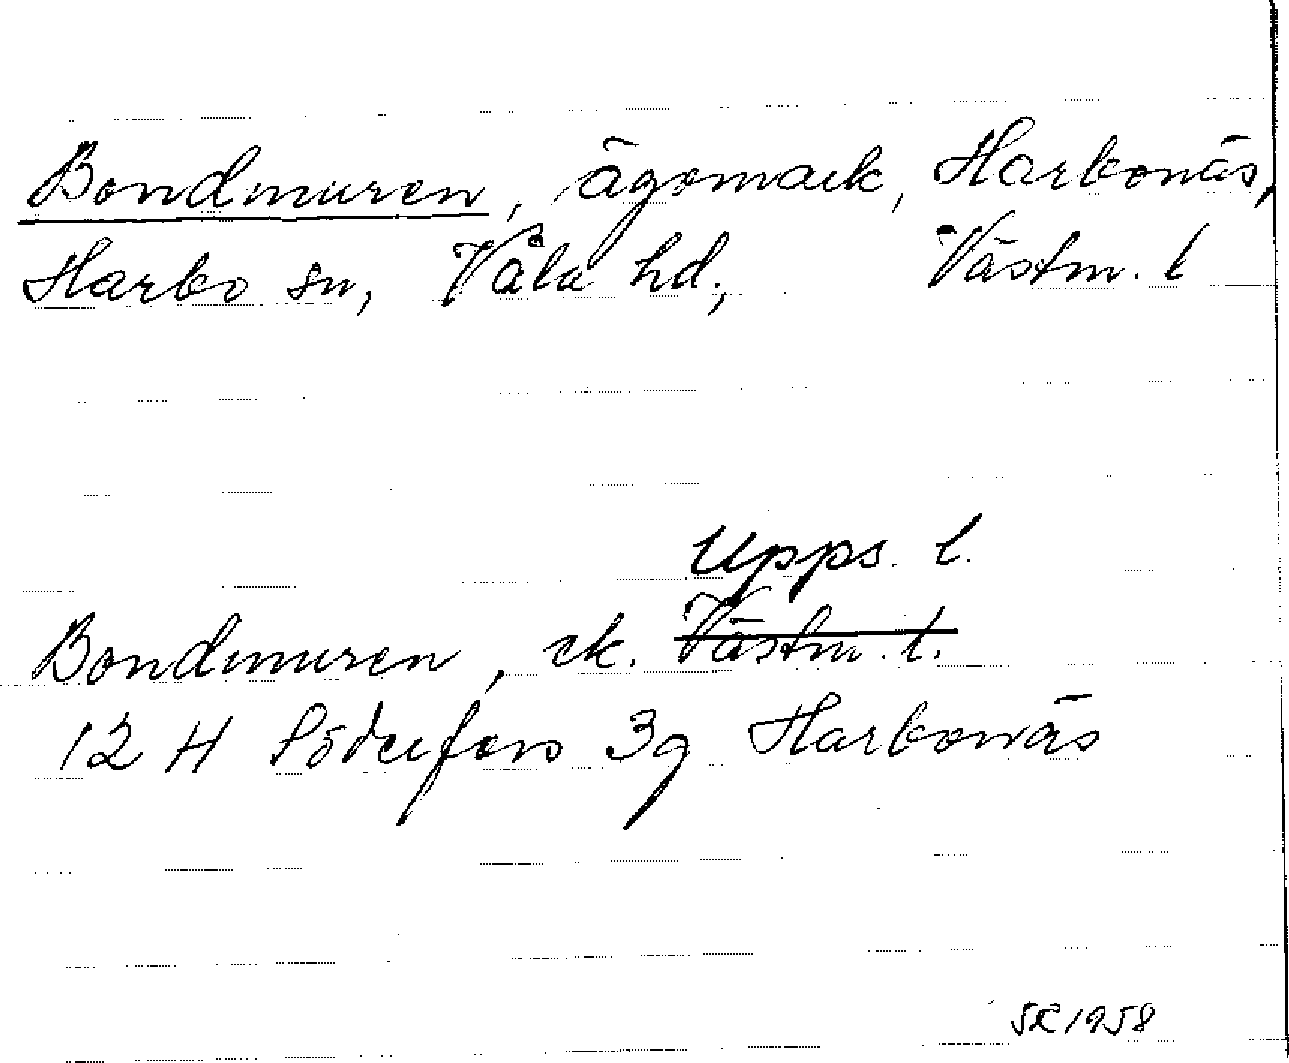 Bondmuren, ägomark, Harbonäs,
Harbo sn, Våla hd, Västm. l
Upps. l.
Bondmuren, ek. Västm. l.
12 H Söderfors 3g Harbonäs
SR 1958